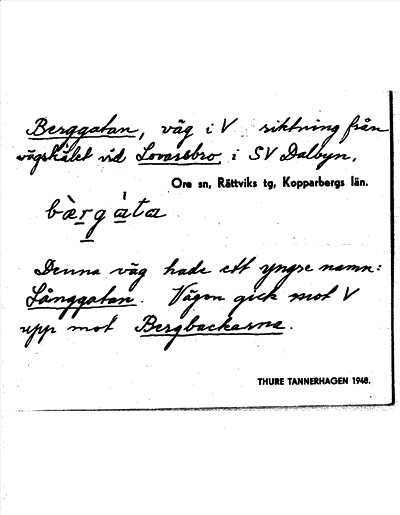 Berggatan, väg i V riktning från
vägskälet vid Lovarsbro, i SV Dalbyn.
Ore sn, Rättviks tg, Kopparbergs län.
bæ̀rg àta
Denna väg hade ett yngre namn:
Långgatan. Vägen gick mot V
upp mot Bergbackarna.
THURE TANNERHAGEN 1948.